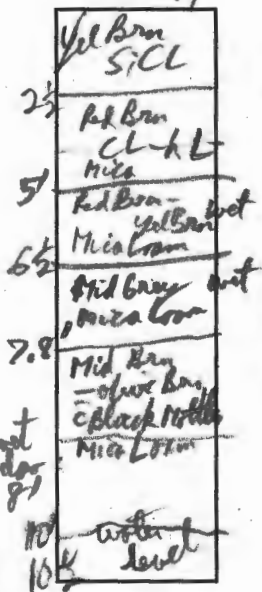 Yel Brn
SiCL
2½
Red Brn
CL-hL
Mica
5'
Red Brn-
Yel Brn wet
Mica Loam
6½
Mid Grey wet
Mica Loam
7.8
Mid Brn
-olive Brn
c Black Mottles
Mica Loam
8'
10'
water
level
10½